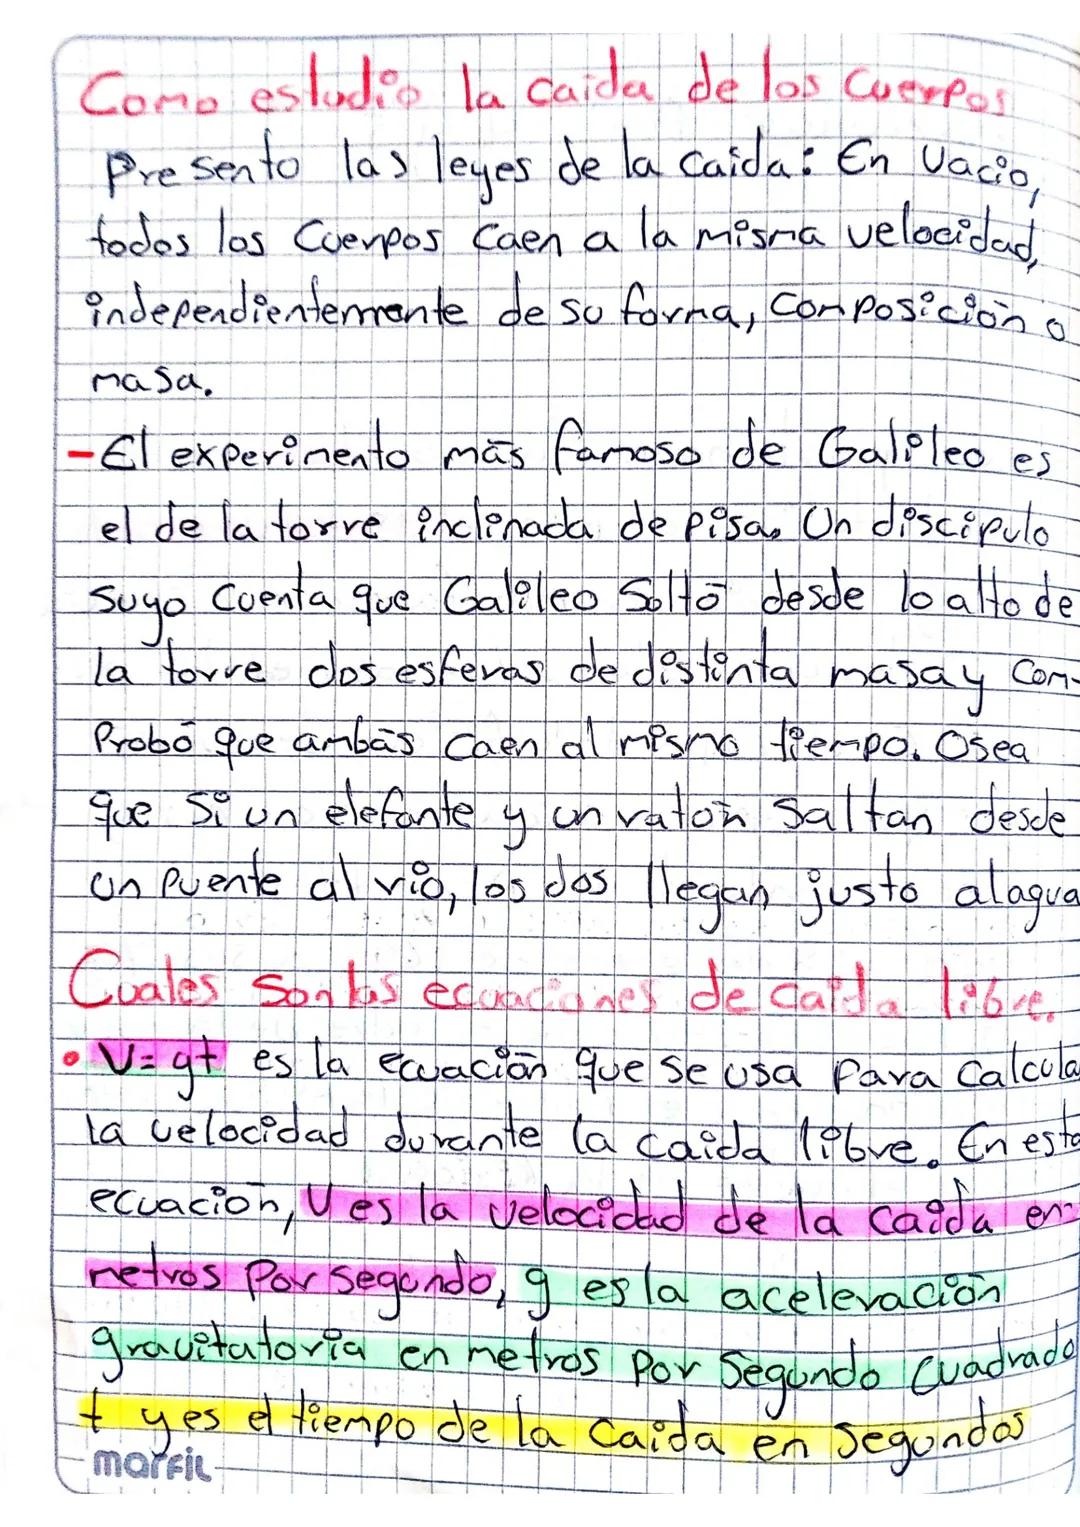 Como estudio la caida de los Cuerpos
Presento las leyes de la caida: En Vacio,
todos los Cuerpos Caen a la misma velocidad,
independientemente de su forma, Composición o
masa.
-El experimento más famoso de Galileo es
el de la torre inclinada de pisa. Un discipulo
suyo Cuenta que Galileo Soltó desde lo alto de
la torre dos esferas de distinta masa y Com-
Probó que ambas Caen al mismo tiempo. Osea
que Si un elefante y un ratón Saltan desde
un Puente al rio, los dos llegan justo alagua
Cuales Son las ecuaciones de Caida libre.
• V=gt es la ecuación que se usa Para Calcula
la velocidad durante la Caida libre. En esta
ecuación, V es la velocidad de la Caida en
metros Por segundo, g es la aceleración
gravitatoria en metros Por Segundo Cuadrado
t y es el tiempo de la Caida en Segundos
marfil